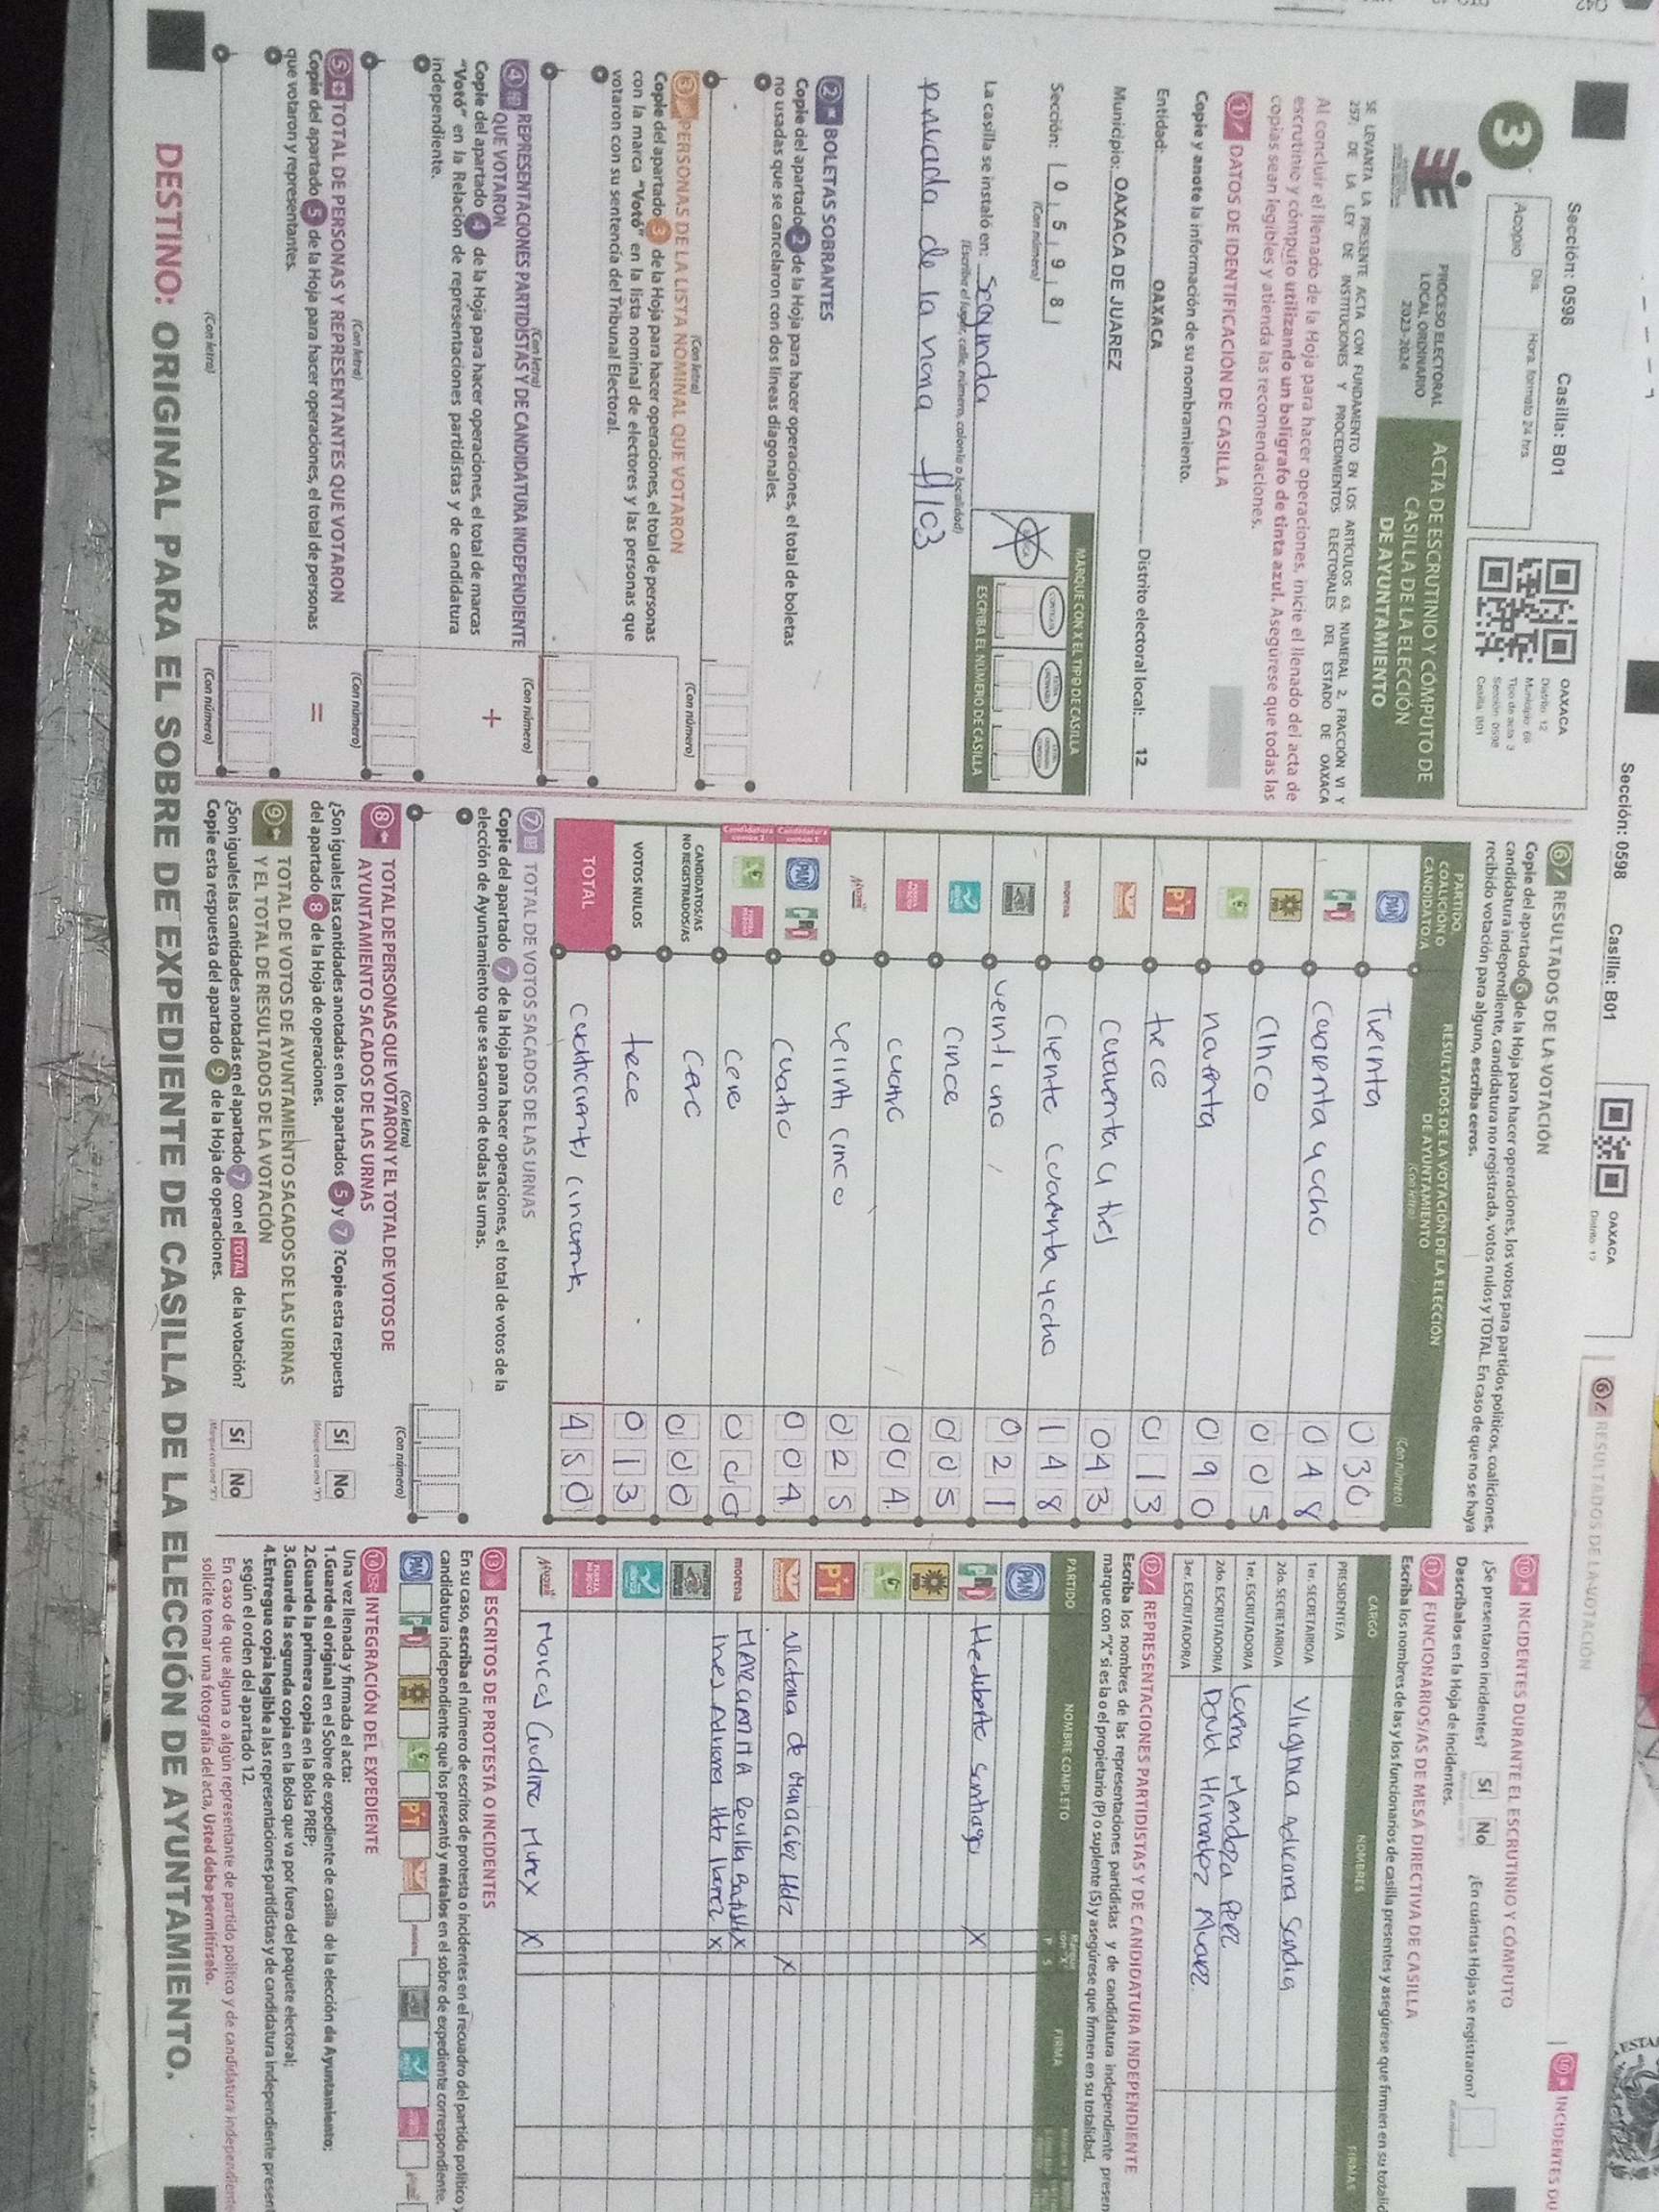 Sección: 0598 Casilla: B01
3
Día Hora: formato 24 hrs.
Acopio
OAXACA
Distrito: 12
Municipio: 66
Tipo de acta: 3
Sección: 0598
Casilla: B01
PROCESO ELECTORAL
LOCAL ORDINARIO
2023-2024
ACTA DE ESCRUTINIO Y CÓMPUTO DE
CASILLA DE LA ELECCIÓN
DE AYUNTAMIENTO
SE LEVANTA LA PRESENTE ACTA CON FUNDAMENTO EN LOS ARTÍCULOS 63, NUMERAL 2, FRACCIÓN VI Y
257, DE LA LEY DE INSTITUCIONES Y PROCEDIMIENTOS ELECTORALES DEL ESTADO DE OAXACA
Al concluir el llenado de la Hoja para hacer operaciones, inicie el llenado del acta de
escrutinio y cómputo utilizando un bolígrafo de tinta azul. Asegúrese que todas las
copias sean legibles y atienda las recomendaciones.
1 DATOS DE IDENTIFICACIÓN DE CASILLA
Copie y anote la información de su nombramiento.
Entidad: OAXACA Distrito electoral local: 12
Municipio: OAXACA DE JUAREZ
MARQUE CON X EL TIPO DE CASILLA
Sección: 0 5 9 8
(Con número)
ESCRIBA EL NÚMERO DE CASILLA
La casilla se instaló en: Segunda
(Escriba el lugar, calle, número, colonia o localidad)
privada de la noria #103
2 BOLETAS SOBRANTES
Copie del apartado 2 de la Hoja para hacer operaciones, el total de boletas
no usadas que se cancelaron con dos líneas diagonales.
(Con letra) (Con número)
3 PERSONAS DE LA LISTA NOMINAL QUE VOTARON
Copie del apartado 3 de la Hoja para hacer operaciones, el total de personas
con la marca "Votó" en la lista nominal de electores y las personas que
votaron con su sentencia del Tribunal Electoral.
(Con letra) (Con número)
4 REPRESENTACIONES PARTIDISTAS Y DE CANDIDATURA INDEPENDIENTE
QUE VOTARON
Copie del apartado 4 de la Hoja para hacer operaciones, el total de marcas
"Votó" en la Relación de representaciones partidistas y de candidatura
independiente.
+
(Con letra) (Con número)
5 TOTAL DE PERSONAS Y REPRESENTANTES QUE VOTARON
Copie del apartado 5 de la Hoja para hacer operaciones, el total de personas
que votaron y representantes.
=
(Con letra) (Con número)
Sección: 0598 Casilla: B01
OAXACA
Distrito: 12
6 RESULTADOS DE LA VOTACIÓN
Copie del apartado 6 de la Hoja para hacer operaciones, los votos para partidos políticos, coaliciones,
candidatura independiente, candidatura no registrada, votos nulos y TOTAL. En caso de que no se haya
recibido votación para alguno, escriba ceros.
PARTIDO, COALICIÓN O CANDIDATO/A
RESULTADOS DE LA VOTACIÓN DE LA ELECCIÓN DE AYUNTAMIENTO
(Con letra) (Con número)
PAN Treinta 030
PRI Cuarenta y ocho 048
PRD cinco 005
noventa 090
PT trece 013
Cuarenta y tres 043
morena Ciento cuarenta y ocho 148
veintiuno 021
Cinco 005
cuatro 004
veinti cinco 025
Candidatura común 1 PAN PRI cuatro 004
Candidatura común 2 cero 000
CANDIDATOS/AS
NO REGISTRADOS/AS cero 000
VOTOS NULOS trece 013
TOTAL cuatrocientos cincuenta 450
7 TOTAL DE VOTOS SACADOS DE LAS URNAS
Copie del apartado 7 de la Hoja para hacer operaciones, el total de votos de la
elección de Ayuntamiento que se sacaron de todas las urnas.
(Con letra) (Con número)
8 TOTAL DE PERSONAS QUE VOTARON Y EL TOTAL DE VOTOS DE
AYUNTAMIENTO SACADOS DE LAS URNAS
¿Son iguales las cantidades anotadas en los apartados 5 y 7 ? Copie esta respuesta
del apartado 8 de la Hoja de operaciones.
Sí No
9 TOTAL DE VOTOS DE AYUNTAMIENTO SACADOS DE LAS URNAS
Y EL TOTAL DE RESULTADOS DE LA VOTACIÓN
¿Son iguales las cantidades anotadas en el apartado 7 con el TOTAL de la votación?
Copie esta respuesta del apartado 9 de la Hoja de operaciones.
Sí No
6 RESULTADOS DE LA VOTACIÓN
10 INCIDENTES DURANTE EL ESCRUTINIO Y CÓMPUTO
¿Se presentaron incidentes? Sí No ¿En cuántas Hojas se registraron?
Descríbalos en la Hoja de incidentes.
11 FUNCIONARIOS/AS DE MESA DIRECTIVA DE CASILLA
Escriba los nombres de las y los funcionarios de casilla presentes y asegúrese que firmen en su totalid
CARGO NOMBRES FIRMAS
PRESIDENTE/A
1er. SECRETARIO/A Virginia Adriana Sandia
2do. SECRETARIO/A
1er. ESCRUTADOR/A Lorena Mendoza Perez
2do. ESCRUTADOR/A David Hernandez
3er. ESCRUTADOR/A
12 REPRESENTACIONES PARTIDISTAS Y DE CANDIDATURA INDEPENDIENTE
Escriba los nombres de las representaciones partidistas y de candidatura independiente presen
marque con "X" si es la o el propietario (P) o suplente (S) y asegúrese que firmen en su totalidad.
PARTIDO NOMBRE COMPLETO P S FIRMA
PAN
PRI Heriberto Santiago X
PRD
PT
Victoria de Hdz X
morena MARGARITA Revilla Batista X
Ines Adriana Hdz X
Marcos X
13 ESCRITOS DE PROTESTA O INCIDENTES
En su caso, escriba el número de escritos de protesta o incidentes en el recuadro del partido político y
candidatura independiente que los presentó y métalos en el sobre de expediente correspondiente.
14 INTEGRACIÓN DEL EXPEDIENTE
Una vez llenada y firmada el acta:
1.Guarde el original en el Sobre de expediente de casilla de la elección de Ayuntamiento;
2.Guarde la primera copia en la Bolsa PREP;
3.Guarde la segunda copia en la Bolsa que va por fuera del paquete electoral;
4.Entregue copia legible a las representaciones partidistas y de candidatura independiente present
según el orden del apartado 12.
En caso de que alguna o algún representante de partido político y de candidatura independiente
solicite tomar una fotografía del acta, Usted debe permitírselo.
10 INCIDENTES DU
DESTINO: ORIGINAL PARA EL SOBRE DE EXPEDIENTE DE CASILLA DE LA ELECCIÓN DE AYUNTAMIENTO.